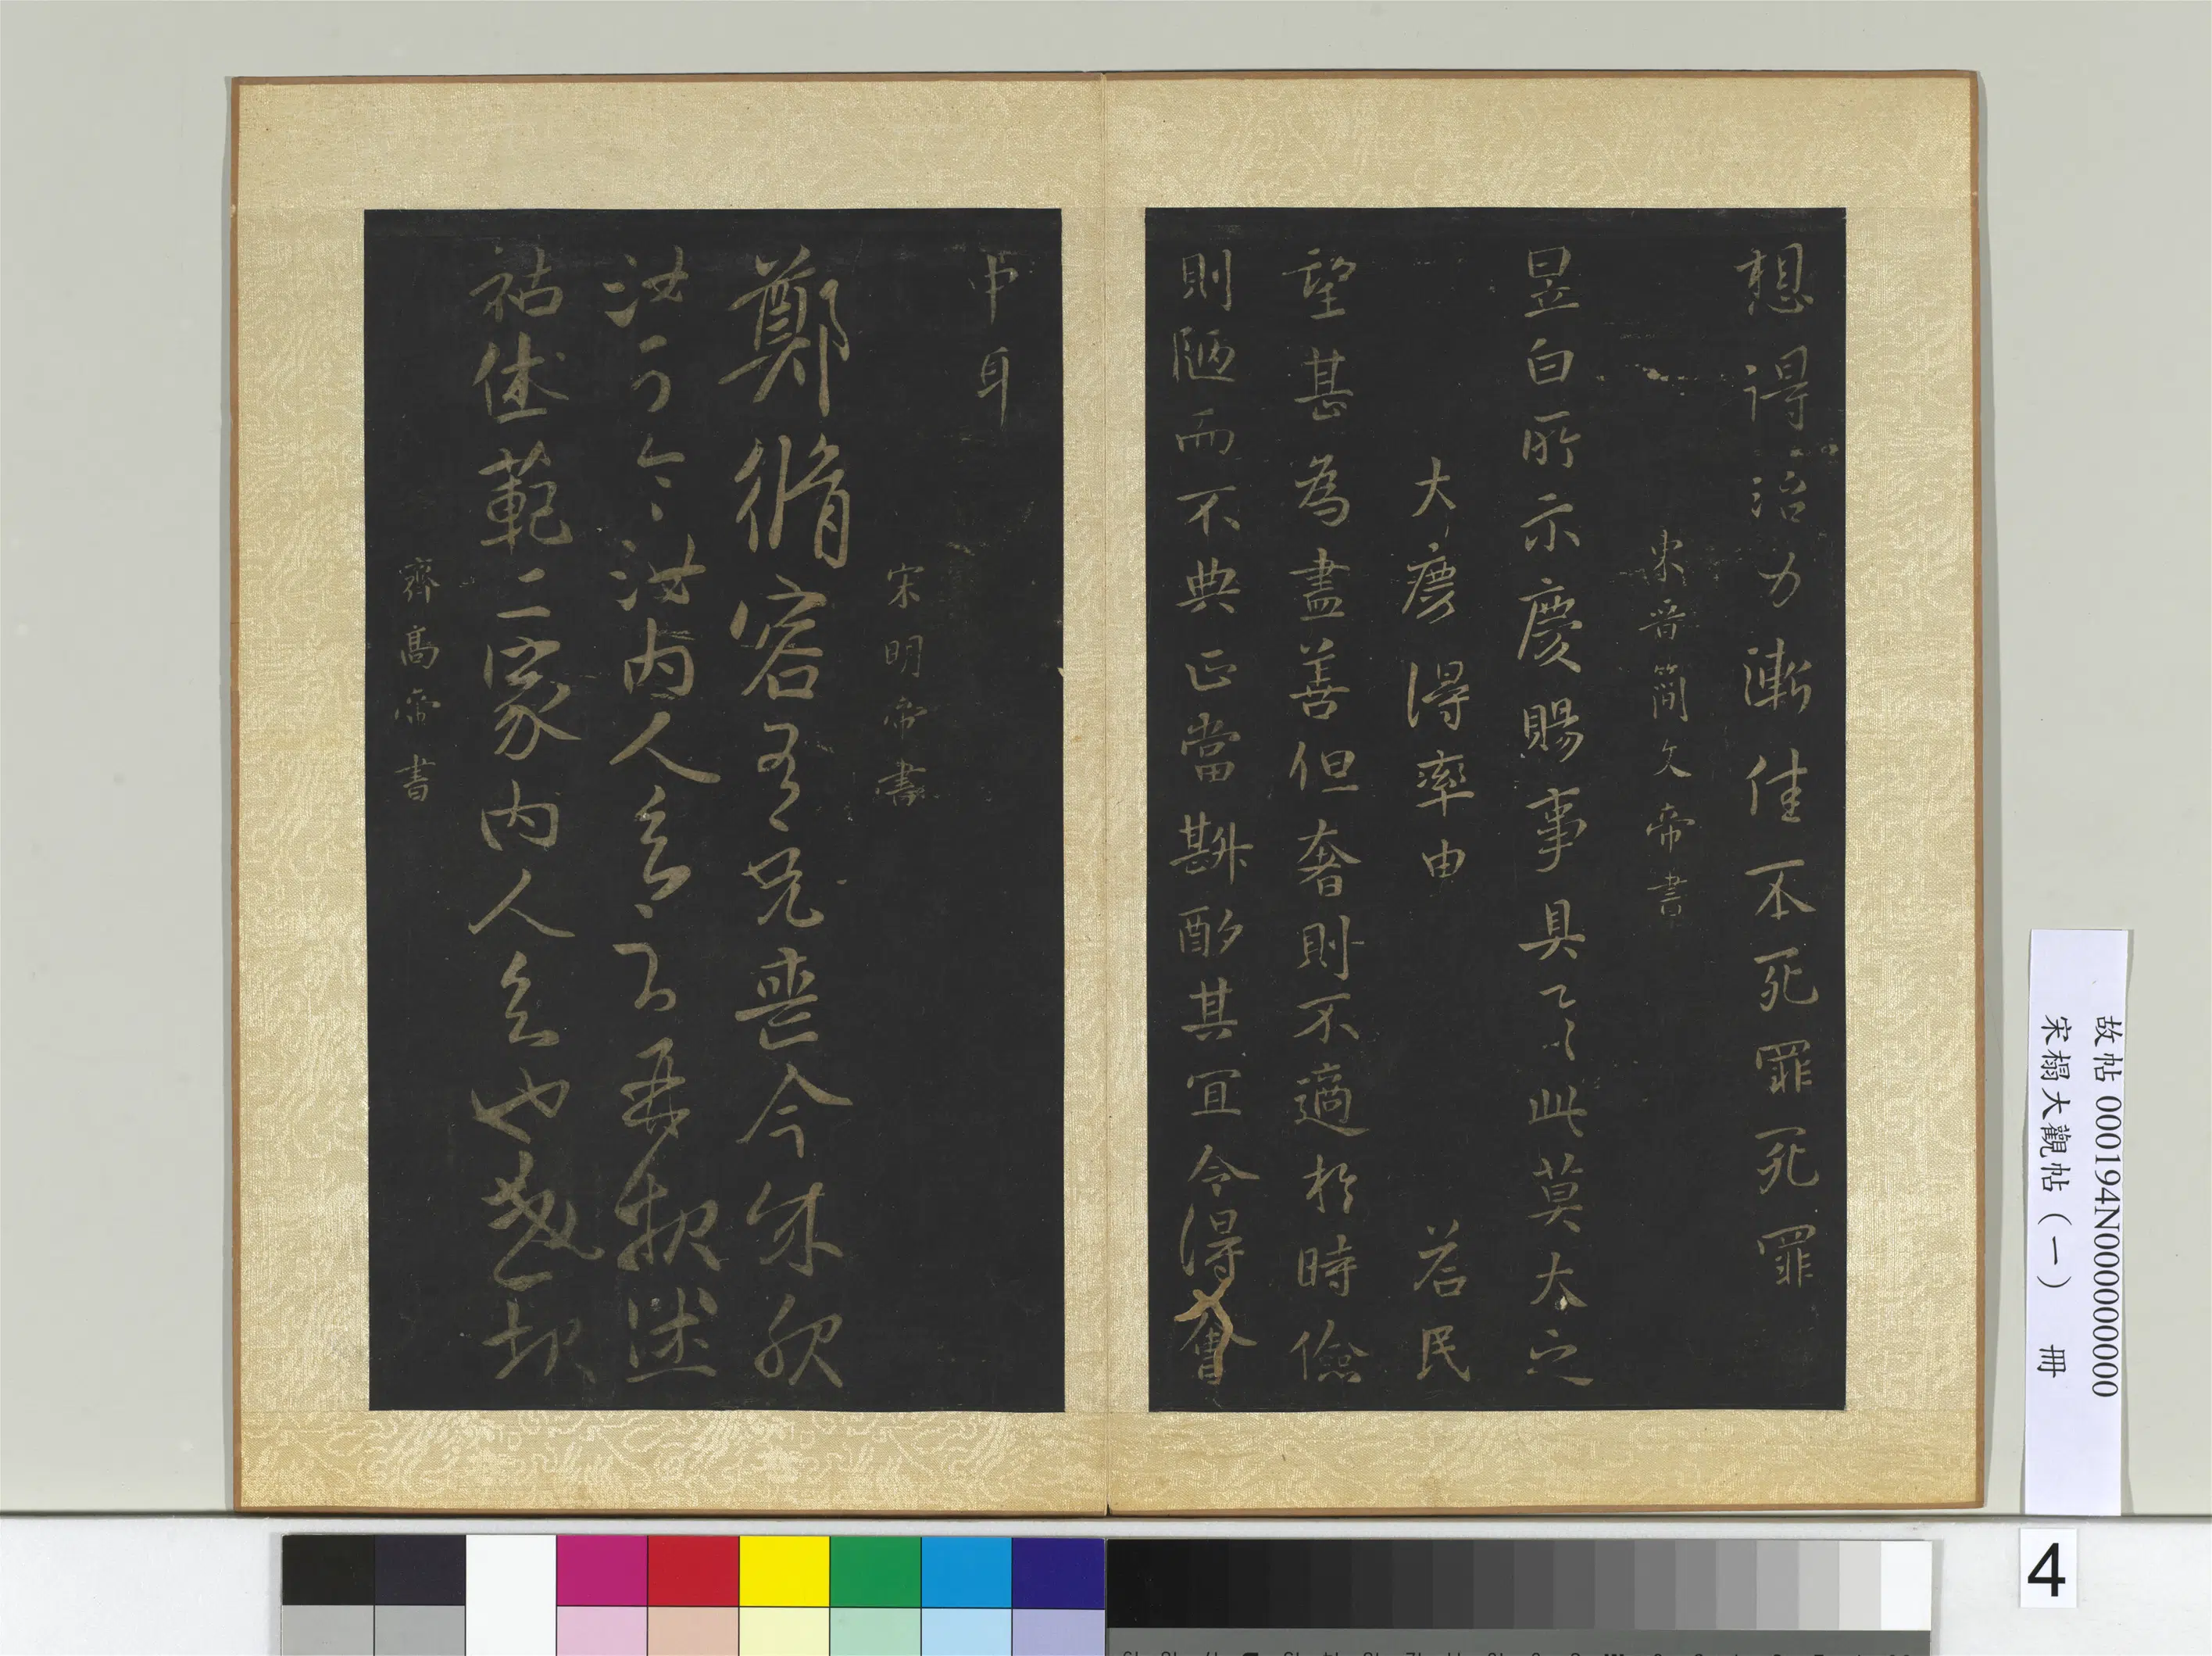 想得治力漸佳不死罪死罪
東晉簡文帝書
昱白所示慶賜事具此莫大之
大慶得率由若民
望甚為盡善但奢則不適於時儉
則陋而不典正當斟酌其宜令得奢
中耳
宋明帝書
鄭脩容兄喪今成服
汝可令汝內人
祐範二家內人也
齊高帝書
故帖 000194N000000000
宋榻大觀帖（一） 冊
4